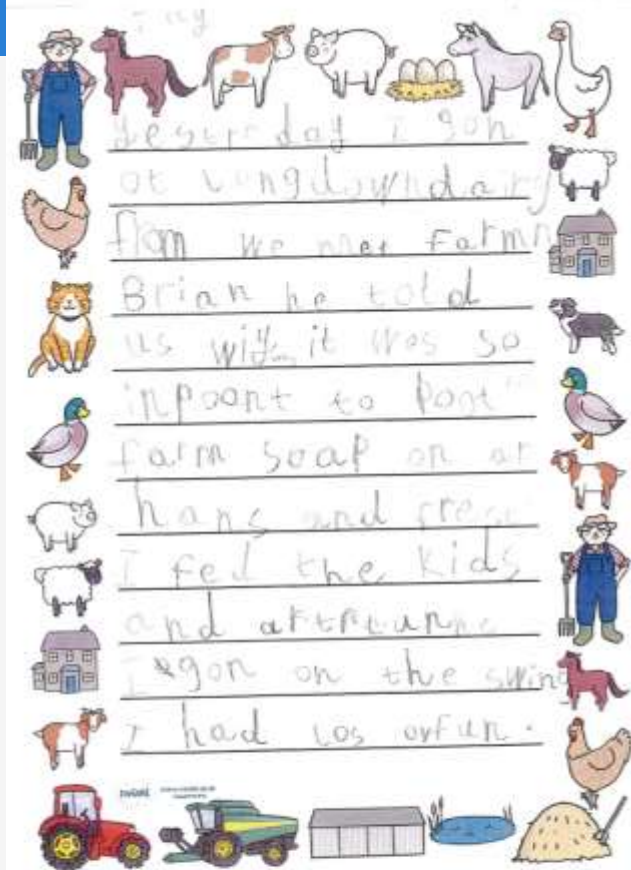 yesterday i gon
ot longdowndairy
from we met farmn
Brian he told
us wiy it wos so
inpoont to poot
farm soap on ar
hans and
I fed the kids
and
I gon on the swing
I had los ovfun.